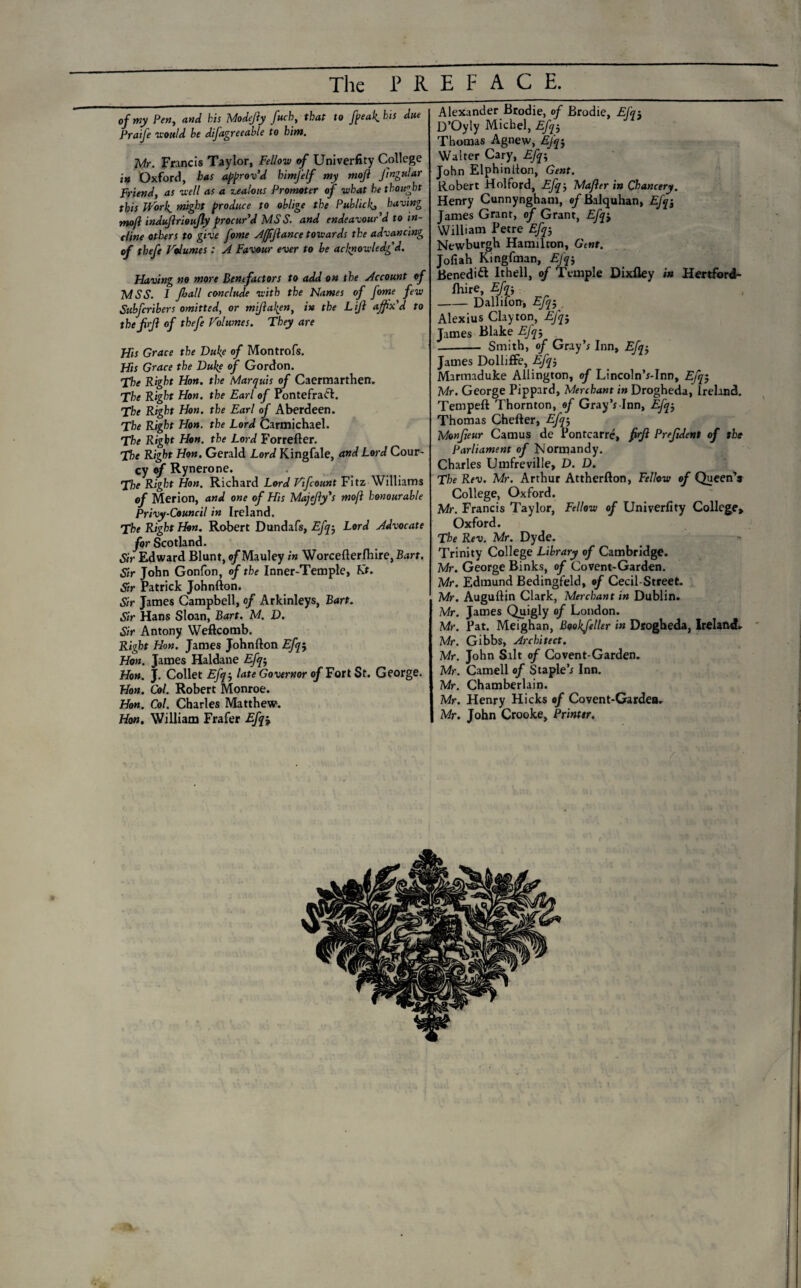 The PREFACE.
of my Pen, and his Modesty such, that to speak his due
Praise would be disagreeable to him.
Mr. Francis Taylor, Fellow of Univerſity College
in Oxford, has approv'd himſelf my moſt ſingular
Friend, as well as a zealous Promoter of what he thought
this Work might produce to oblige the Publick, having
moſt induſtriouſly procur'd MSS. and endeavour'd to in-
cline others to give ſome Aſſiſtance towards the advancing
of theſe Volumes: A Favour ever to be acknowledg'd.
Having no more Benefactors to add on the Account of
MSS. I ſhall conclude with the Names of ſome few
Subſcribers omitted, or miſtaken, in the Liſt affix'd to
the firſt of theſe Volumes. They are
His Grace the Duke of Montroſs.
His Grace the Duke of Gordon.
The Right Hon. the Marquis of Caermarthen.
The Right Hon. the Earl of Pontefract.
The Right Hon. the Earl of Aberdeen.
The Right Hon. the Lord Carmichael.
The Right Hon. the Lord Forreſter.
The Right Hon. Gerald Lord Kingſale, and Lord Cour-
cy of Rynerone.
The Right Hon. Richard Lord Viſcount Fitz Williams
of Merion, and one of His Majeſty's moſt honourable
Privy-Council in Ireland.
The Right Hon. Robert Dundaſs, Eſq; Lord Advocate
for Scotland.
Sir Edward Blunt, of Mauley in Worceſterſhire, Bart.
Sir John Gonſon, of the Inner-Temple, Kt.
Sir Patrick Johnſton.
Sir James Campbell, of Arkinleys, Bart.
Sir Hans Sloan, Bart. M. D.
Sir Antony Weſtcomb.
Right Hon. James Johnſton Eſq;
Hon. James Haldane Eſq;
Hon. J. Collet Eſq; late Governor of Fort St. George.
Hon. Col. Robert Monroe.
Hon. Col. Charles Matthew.
Hon. William Fraſer Eſq;
Alexander Brodie, of Brodie, Eſq;
D'Oyly Michel, Eſq;
Thomas Agnew, Eſq;
Walter Cary, Eſq;
John Elphinſton, Gent.
Robert Holford, Eſq; Maſter in Chancery.
Henry Cunnyngham, of Balquhan, Eſq;
James Grant, of Grant, Eſq;
William Petre Eſq;
Newburgh Hamilton, Gent.
Joſiah Kingſman, Eſq;
Benedict Ithell, of Temple Dixſley in Hertford-
ſhire, Eſq;
—— Dalliſon, Eſq;
Alexius Clayton, Eſq;
James Blake Eſq;
—— Smith, of Gray's Inn, Eſq;
James Dolliffe, Eſq;
Marmaduke Allington, of Lincoln's-Inn, Eſq;
Mr. George Pippard, Merchant in Drogheda, Ireland.
Tempeſt Thornton, of Gray's-Inn, Eſq;
Thomas Cheſter, Eſq;
Monſieur Camus de Pontcarré, firſt Preſident of the
Parliament of Normandy.
Charles Umfreville, D. D.
The Rev. Mr. Arthur Attherſton, Fellow of Queen's
College, Oxford.
Mr. Francis Taylor, Fellow of Univerſity College,
Oxford.
The Rev. Mr. Dyde.
Trinity College Library of Cambridge.
Mr. George Binks, of Covent-Garden.
Mr. Edmund Bedingfeld, of Cecil-Street.
Mr. Auguſtin Clark, Merchant in Dublin.
Mr. James Quigly of London.
Mr. Pat. Meighan, Bookſeller in Drogheda, Ireland.
Mr. Gibbs, Architect.
Mr. John Salt of Covent-Garden.
Mr. Camell of Staple's Inn.
Mr. Chamberlain.
Mr. Henry Hicks of Covent-Garden.
Mr. John Crooke, Printer.